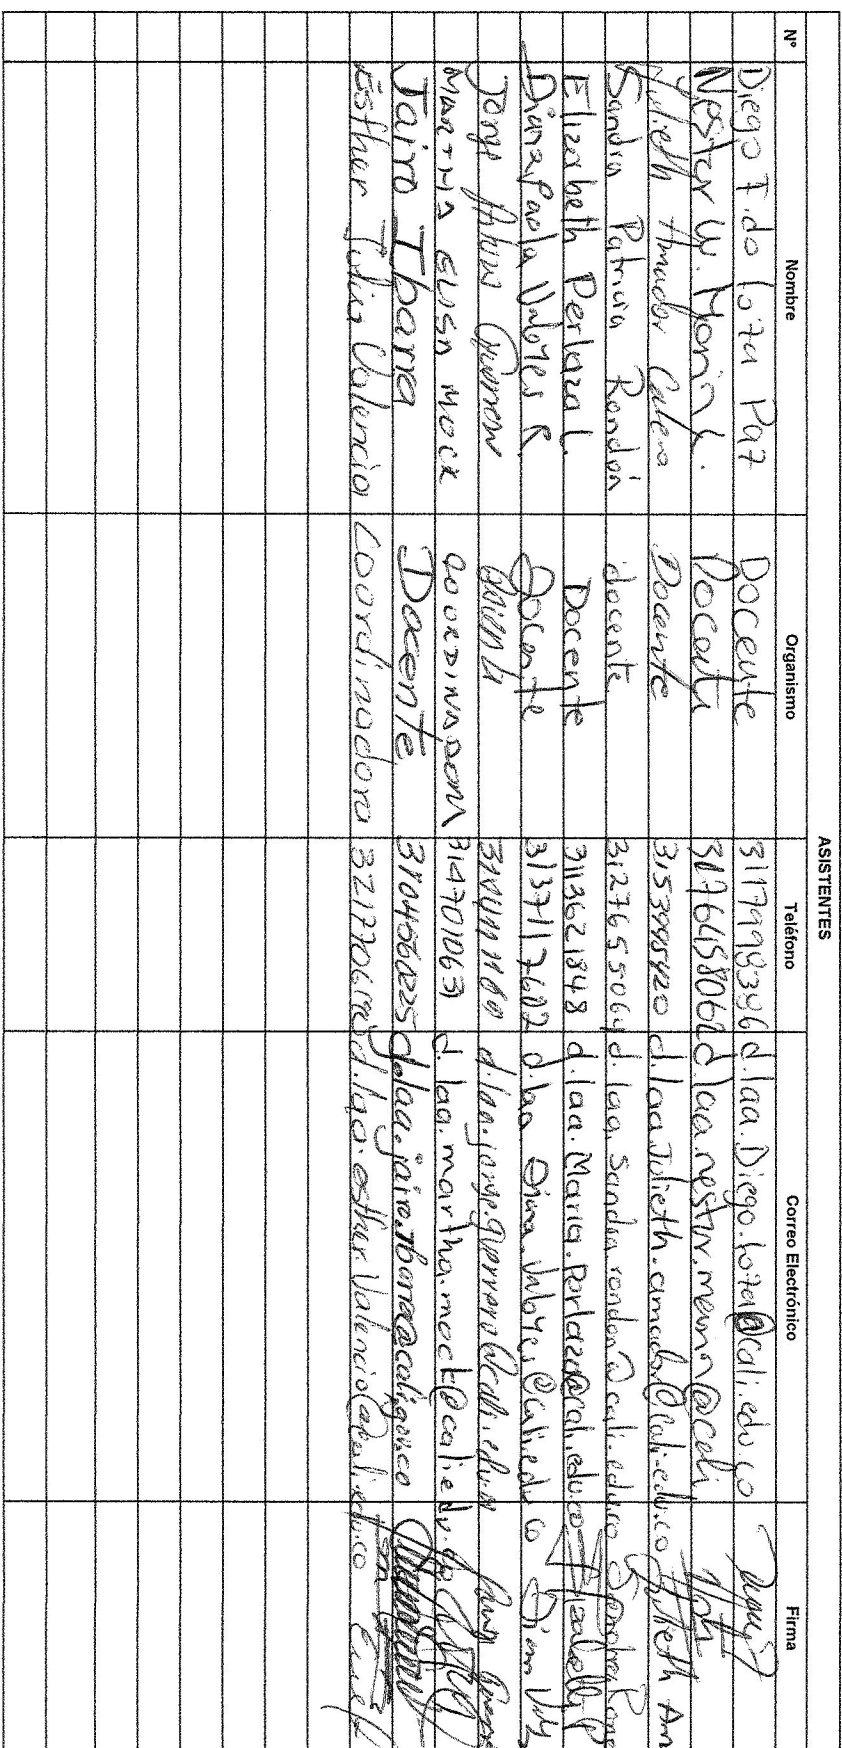 ASISTENTES
Nº Nombre Organismo Teléfono Correo Electrónico Firma
Diego F. do Loza Paz Docente 3117998396 d.laa.Diego.Loza@cali.edu.co
Nestor W. Docente d laa.nestor.@cali
Julieth Amador Calero Docente d.laa.Julieth.amador@cali.edu.co Julieth Am
Sandra Patricia Rendón docente 3127655064 d.laa.Sandra.rendon@cali.edu.co Sandra
Elizabeth Perlaza L. Docente 3113621848 d.laa.Maria.Perlaza@cali.edu.co Elizabeth P
Diana Paola Valoyes R Docente 3137117602 d.laa Diana.Valoyes@cali.edu.co Diana
Jorge Guerrero d.laa.jorge.guerrero@cali.edu.co
MARTHA LUISA MOCK COORDINADORA 3147701063 d.laa.martha.mock@cali.edu.co
Jairo Ibarra Docente d.laa.jairo.Ibarra@cali.gov.co
Esther Julia Valencia Coordinadora d.laa.esther.Valencia@cali.edu.co